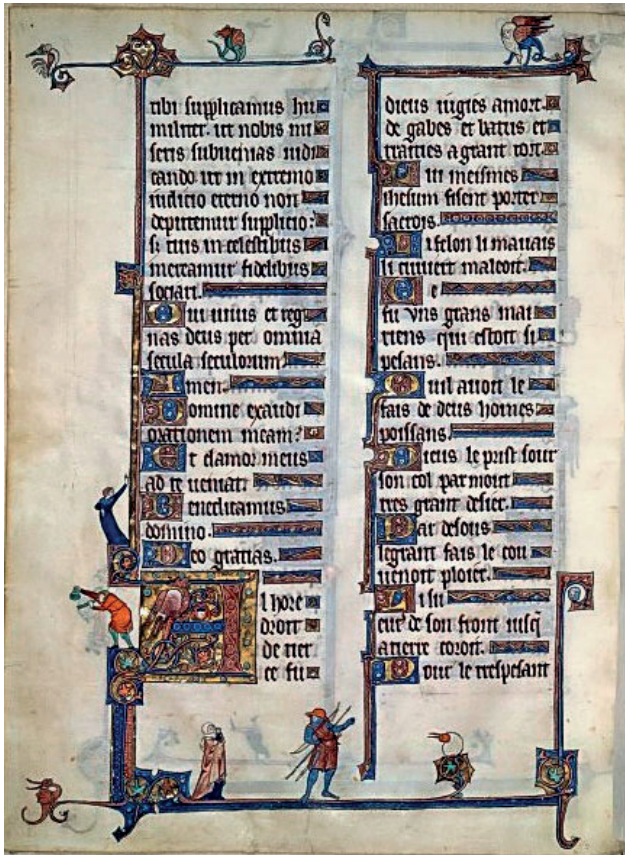 tibi supplicamus hu
militer. ut nobis mi
seris subuenias iudi
cando ut in extremo
iudicio eterno non
deputemur supplicio:
tuis in celestibus
mereamur fidelibus
sociari.
Qui uiuis et reg
nas deus per omnia
secula seculorum
Amen.
Domine exaudi
orationem meam:
Et clamor meus
ad te ueniat.
Benedicamus
domino.
Deo gratias.
Al hore
droit
de tier
ce fu
dieus iugies a mort.
de gabes et batus et
traities a grant tort.
Lui meismes
ihesum fisent porter
sa crois.
Li felon li mauais
li cuuiert maleoit.
Ce
fu vns grans mai
riens qui estoit si
pesans.
Quil auoit le
fais de deus homes
poissans.
Dieus le prist sour
son col par mout
tres grant desier.
Par desous
le grant fais le cou
uenoit ploier.
Li su
eur de son front iusq
a tierre coroit.
Pour le trespesant